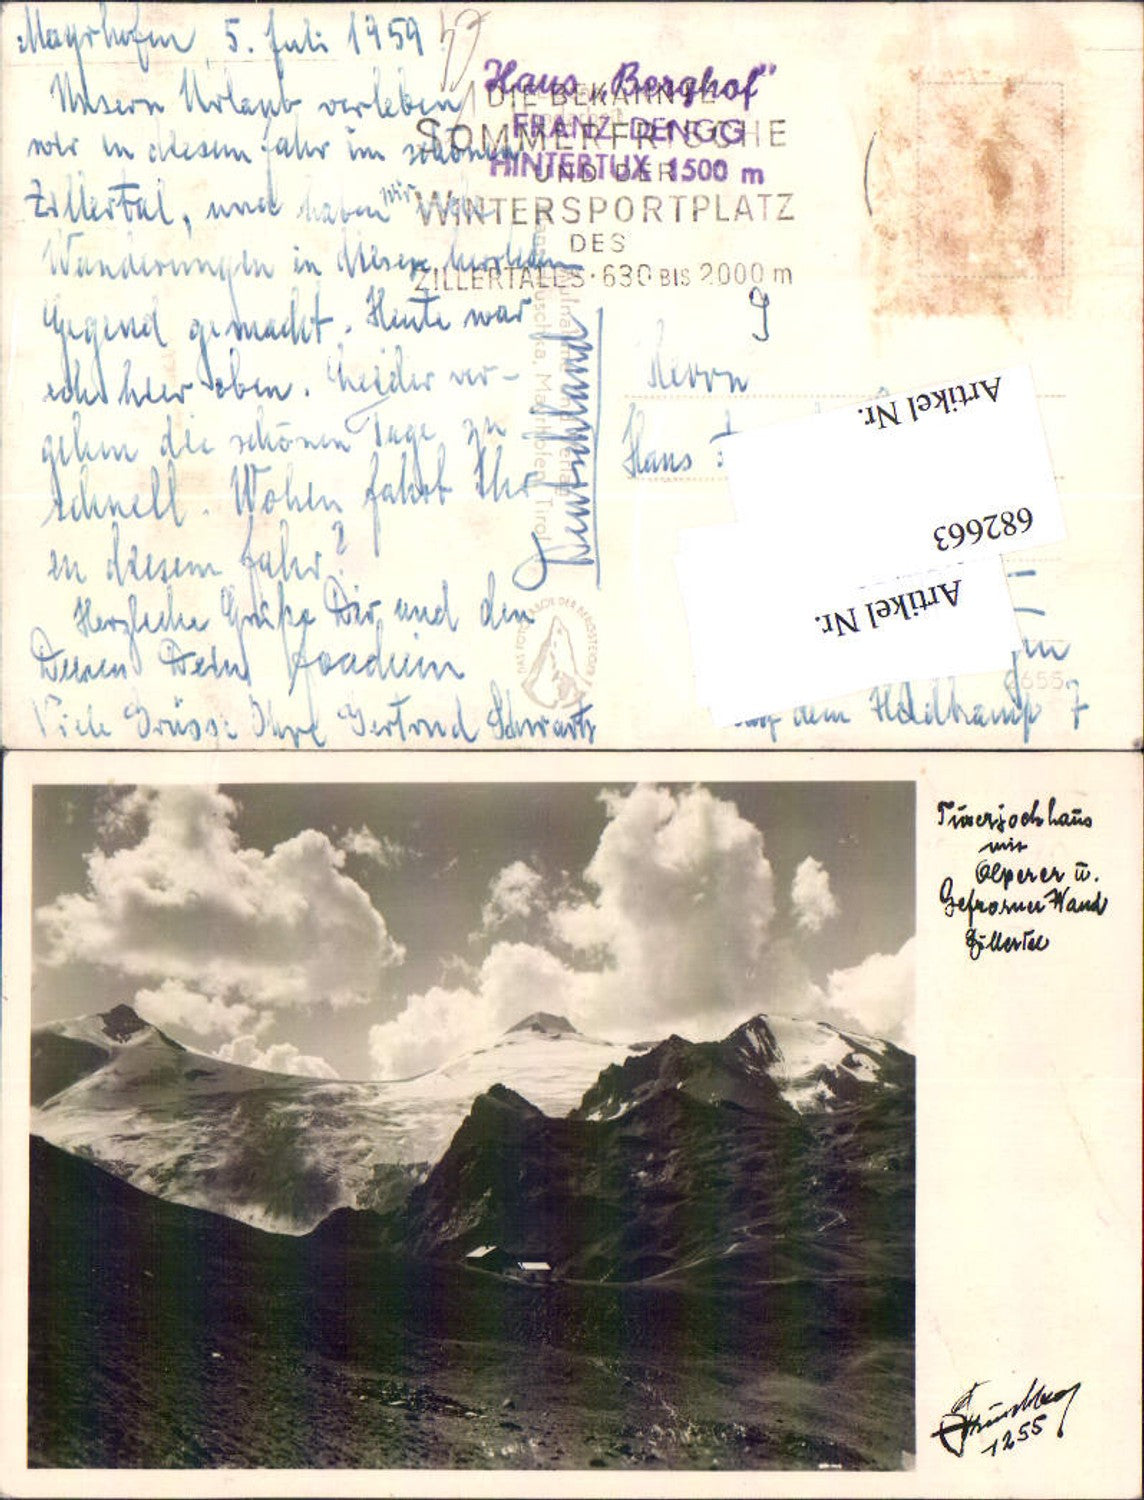 Mayrhofen 5. Juli 1959
Unsern Urlaub verleben
wir in diesem Jahr im schönen
Zillertal, und haben wir viele
Wanderungen in dieser herrlichen
Gegend gemacht. Heute war
ich hier oben. Leider ver-
gehen die schönen Tage zu
schnell. Wohin fahrt Ihr
in diesem Jahr?
Herzliche Grüße Dir und den
Deinen Dein Joachim
Viele Grüsse Ihre Gertrud Schwartz
Haus „Berghof"
FRANZ DENGG
HINTERTUX 1500 m
DIE BEKANNTE
SOMMERFRISCHE
UND DER
WINTERSPORTPLATZ
DES
ZILLERTALES · 630 BIS 2000 m
Mayrhofen, Tirol
DAS FOTO
DER BERGSTEIGER
Deutschland
9
Herrn
Hans
Artikel Nr.
682663
Artikel Nr.
auf dem Heidkamp 7
Tuxerjochhaus
mit
Olperer u.
Gefrorner Wand
Zillertal
1255